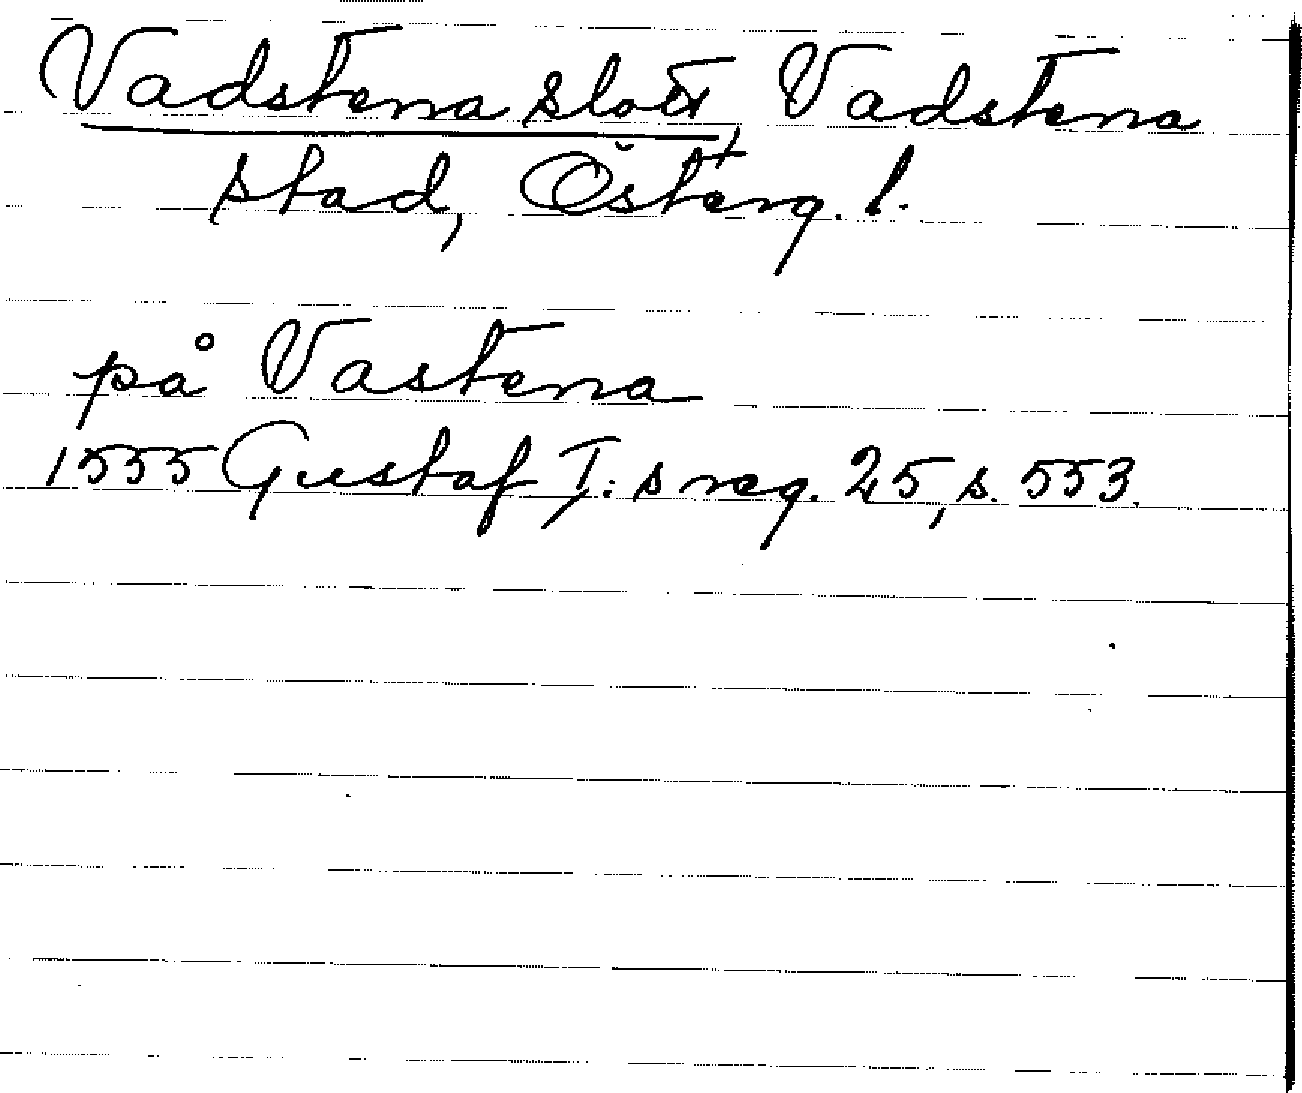 Vadstena slott, Vadstena
stad, Österg. l.
på Vastena
1555 Gustaf I:s reg. 25, s. 553.